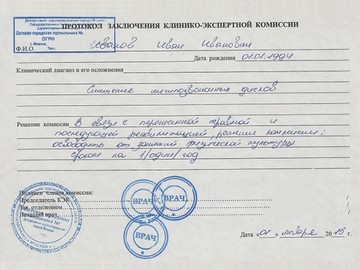 ПРОТОКОЛ ЗАКЛЮЧЕНИЯ КЛИНИКО-ЭКСПЕРТНОЙ КОМИССИИ
Детская городская поликлиника №
ОГРН
г. Москва
Ф.И.О. Иванов Иван Иванович
Дата рождения 01.01.1994
Клинический диагноз и его осложнения
Смещение межпозвоночных дисков
Решение комиссии В связи с перенесенной травмой и
последующей реабилитацией решение комиссии:
освободить от занятий физической культуры
сроком на 1/один/год
Подписи членов комиссии:
Председатель КЭК
Зав. отделением
Лечащий врач
ВРАЧ
ВРАЧ
ВРАЧ
Дата 01 января 20 г.